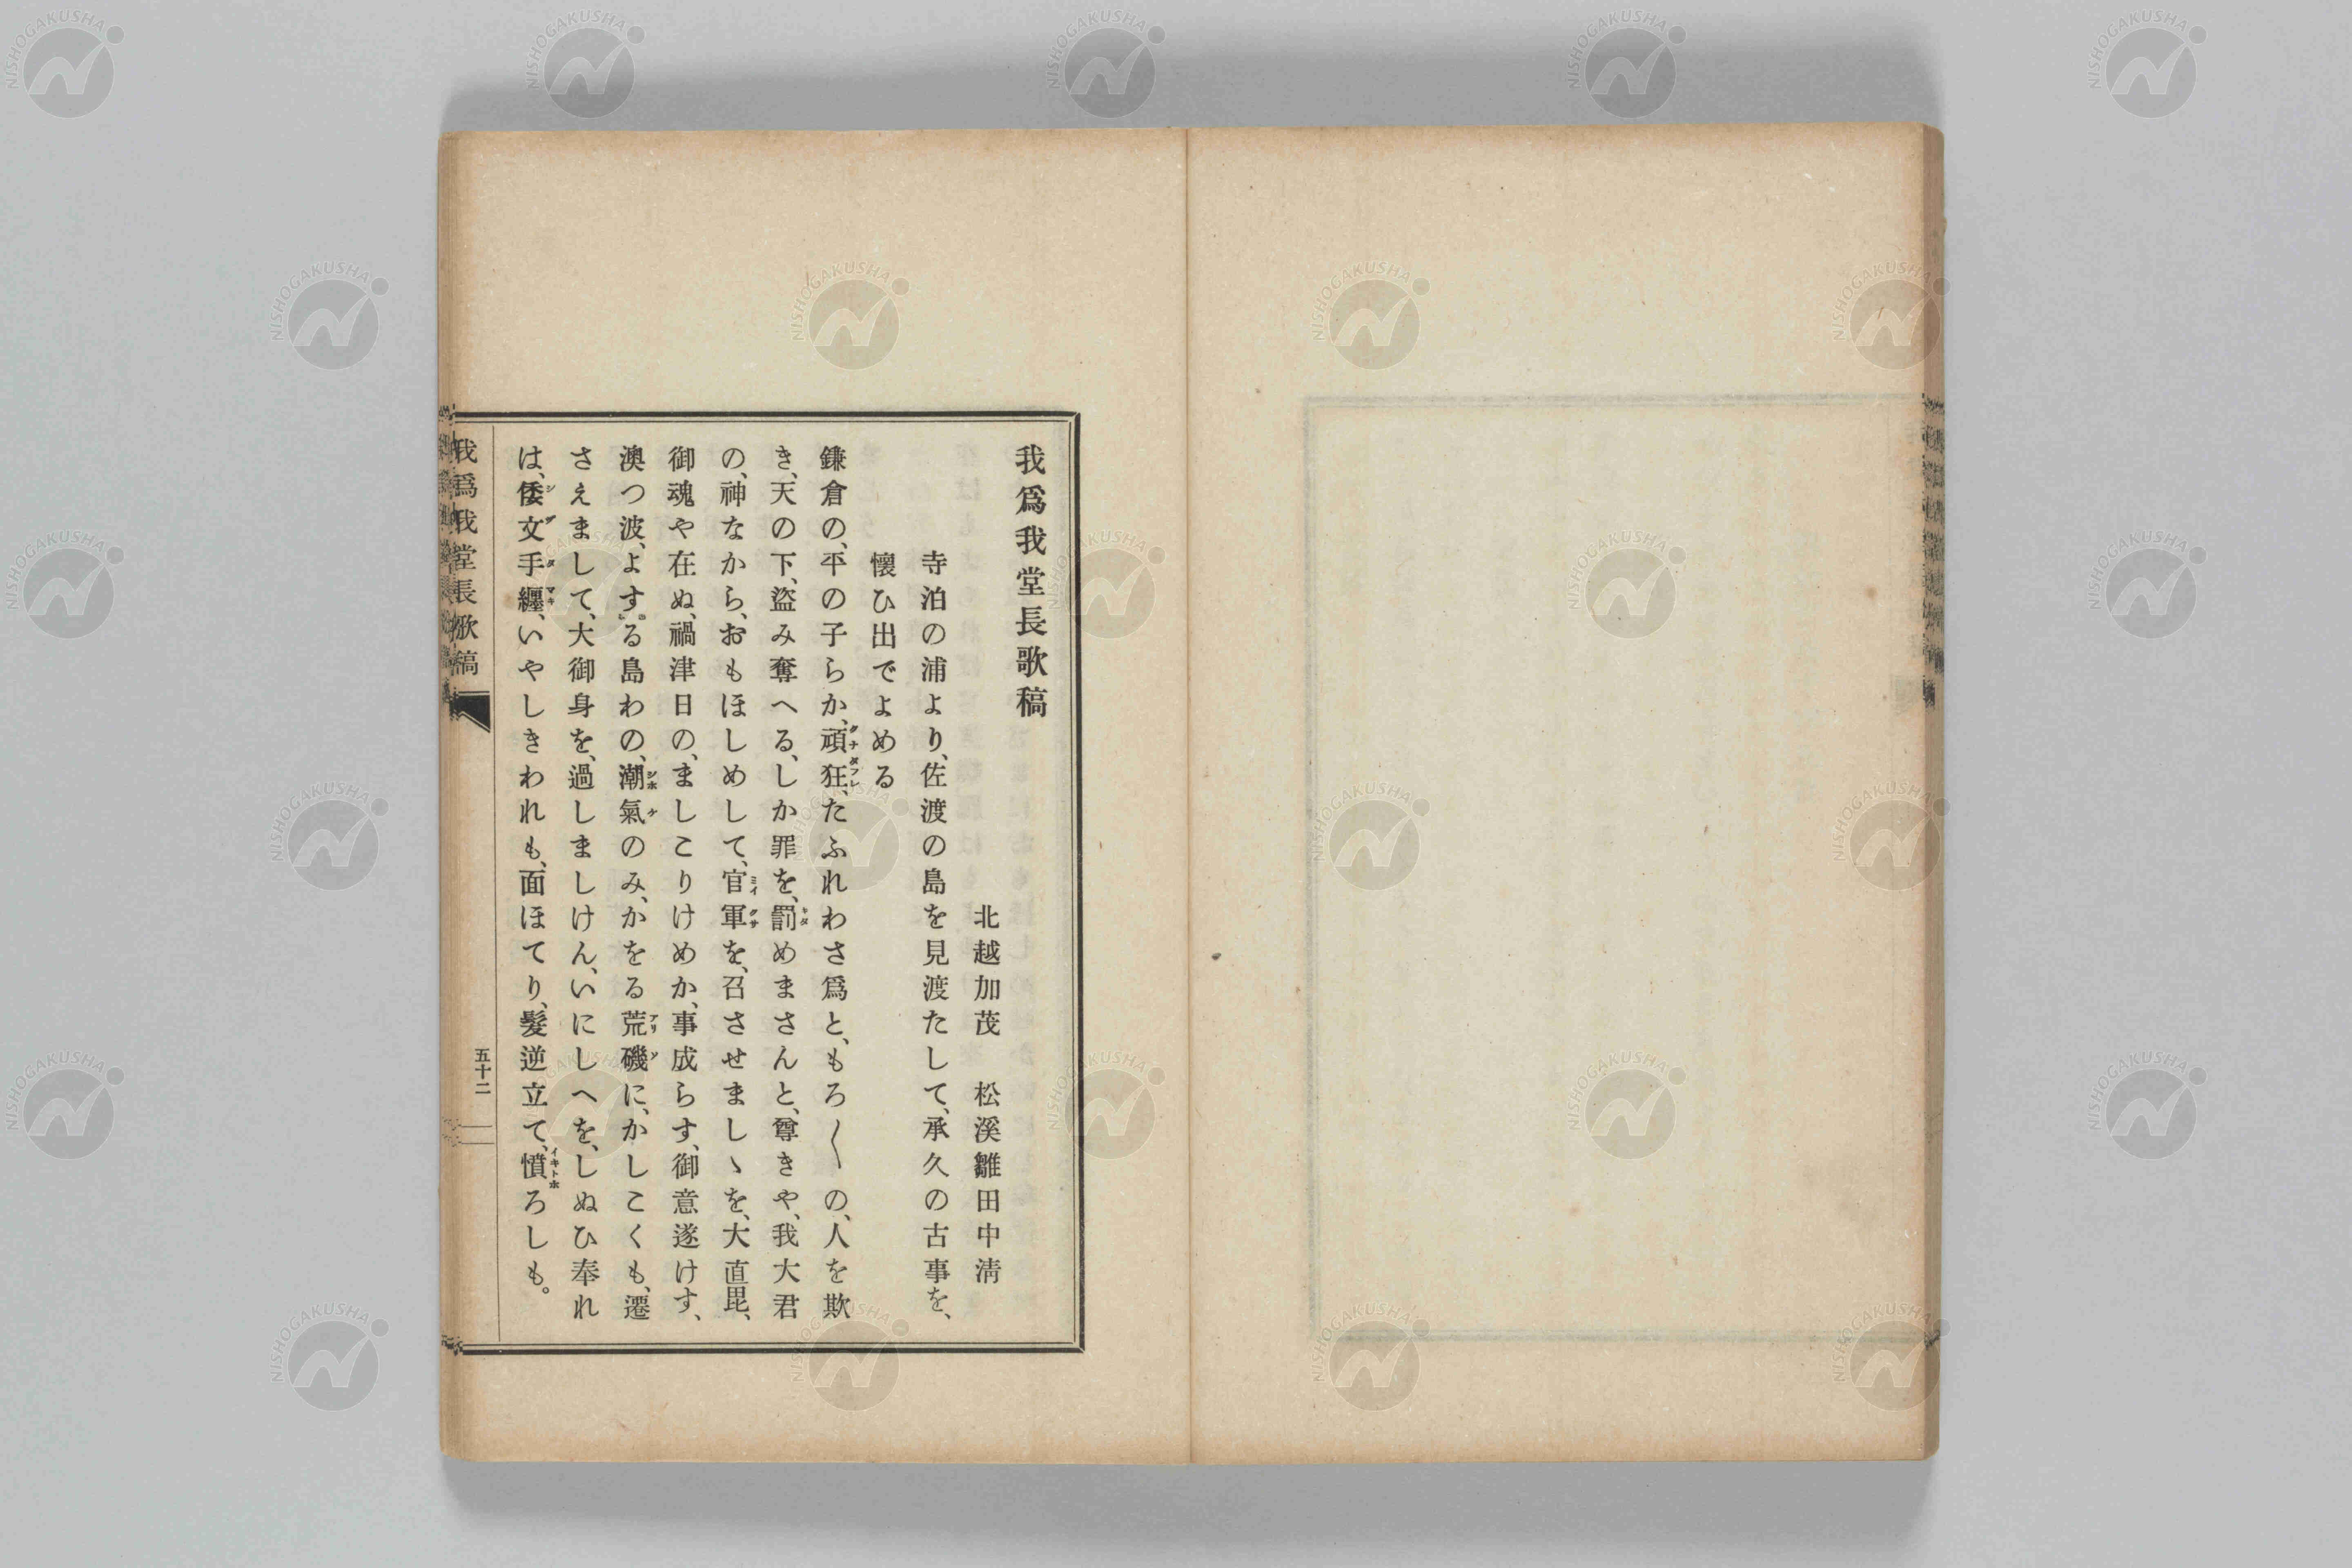 我爲我堂長歌稿
北越加茂　松溪雛田中淸
寺泊の浦より、佐渡の島を見渡たして、承久の古事を、
懷ひ出でよめる
鎌倉の、平の子らか、頑狂、たふれわさ爲と、もろ〱の、人を欺
き、天の下、盜み奪へる、しか罪を、罰めまさんと、尊きや、我大君
の、神なから、おもほしめして、官軍を、召させましゝを、大直毘、
御魂や在ぬ、禍津日の、ましこりけめか、事成らす、御意遂けす、
澳つ波、よする島わの、潮氣のみ、かをる荒磯に、かしこくも、遷
さえまして、大御身を、過しましけん、いにしへを、しぬひ奉れ
は、倭文手纒、いやしきわれも、面ほてり、髮逆立て、憤ろしも。
我爲我堂長歌稿
五十二
NISHOGAKUSHA